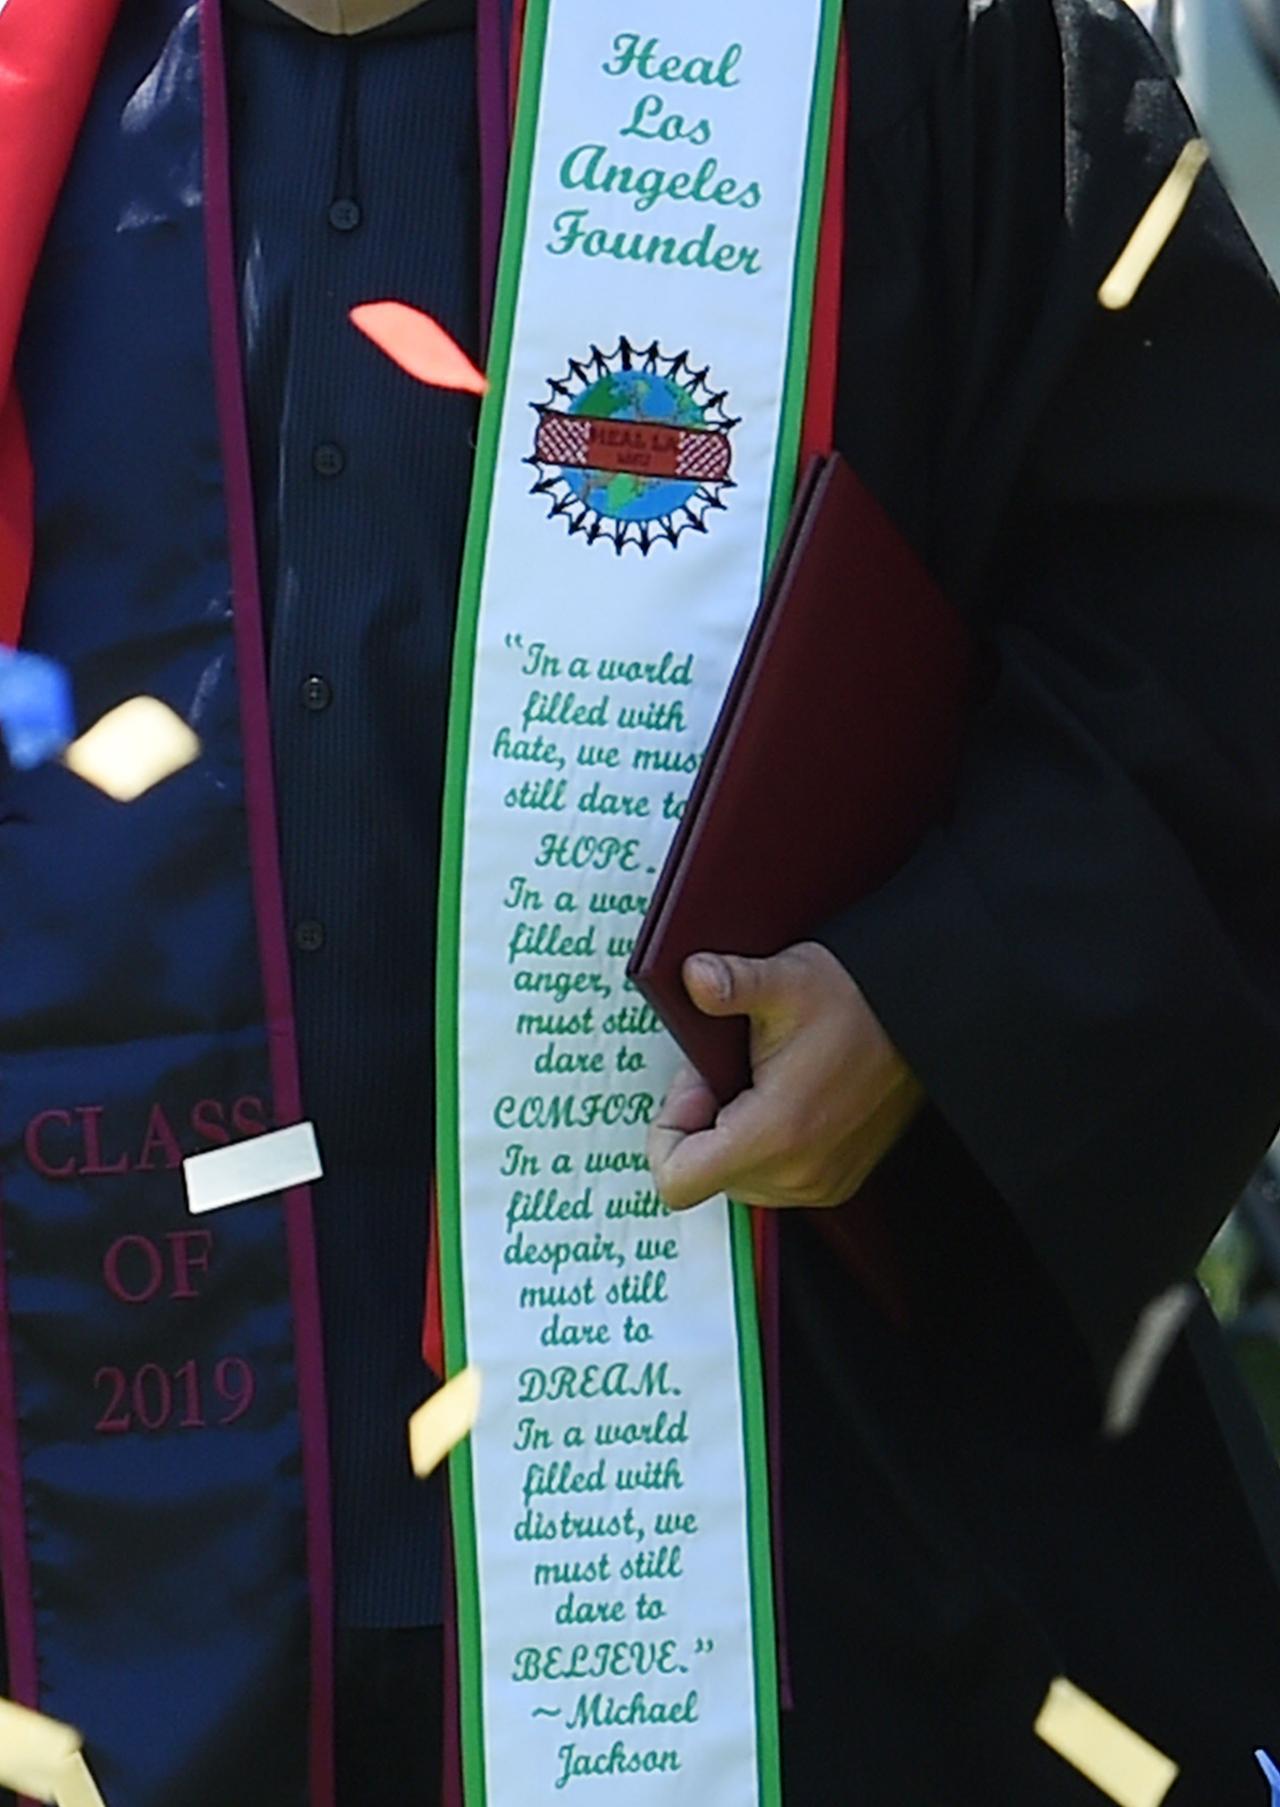 Heal
Los
Angeles
Founder
HEAL LA
"In a world
filled with
hate, we mus
still dare to
HOPE.
In a wor
filled w
anger,
must still
dare to
COMFOR
In a worl
filled with
despair, we
must still
dare to
DREAM.
In a world
filled with
distrust, we
must still
dare to
BELIEVE."
~Michael
Jackson
CLASS
OF
2019